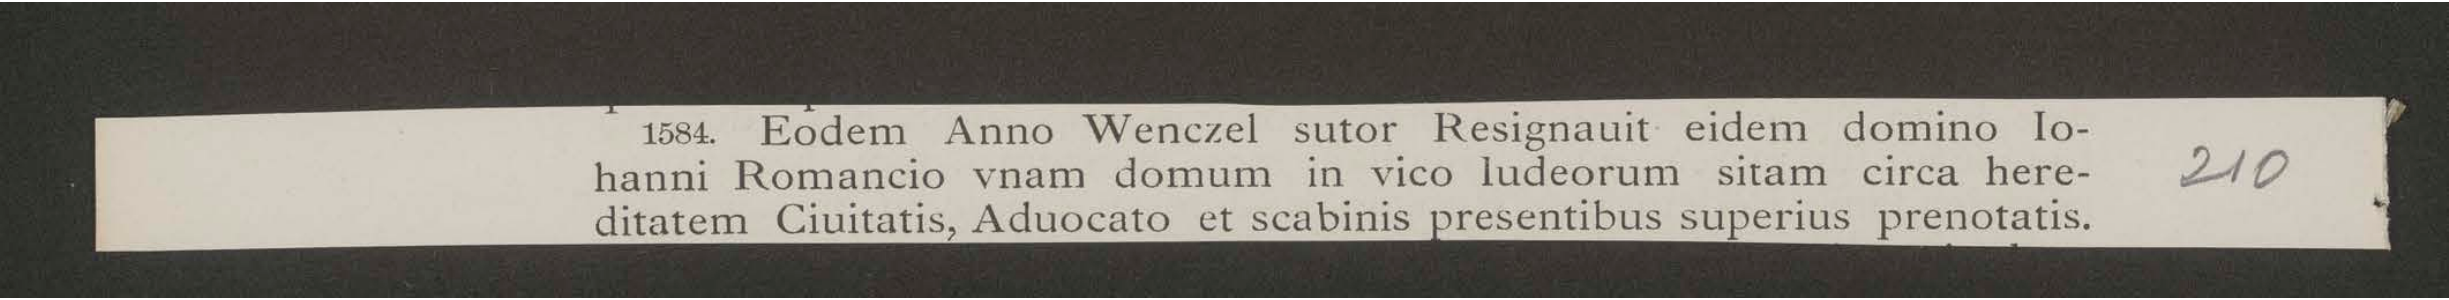 1584. Eodem Anno Wenczel sutor Resignauit eidem domino Io-
hanni Romancio vnam domum in vico Iudeorum sitam circa here-
ditatem Ciuitatis, Aduocato et scabinis presentibus superius prenotatis.
210